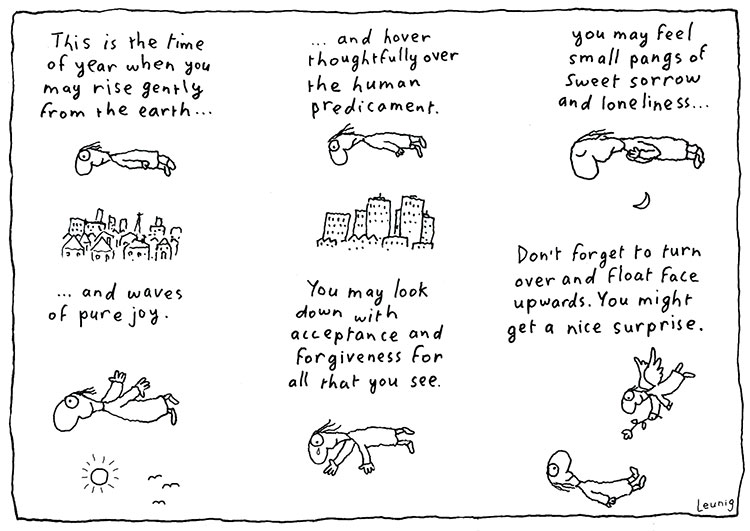 This is the time
of year when you
may rise gently
from the earth...
... and hover
thoughtfully over
the human
predicament.
you may feel
small pangs of
sweet sorrow
and loneliness...
... and waves
of pure joy.
You may look
down with
acceptance and
forgiveness for
all that you see.
Don't forget to turn
over and float face
upwards. You might
get a nice surprise.
Leunig